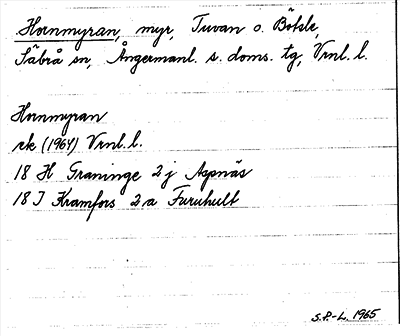 Hornmyran, myr, Tuvan o. Bölsle,
Säbrå sn, Ångermanl. s. doms. tg, Vrnl. l.
Hornmyran
ek (1964) Vrnl. l.
18 H Graninge 2 j Aspnäs
18 I Kramfors 2 a Furuhult
S.P.-L. 1965